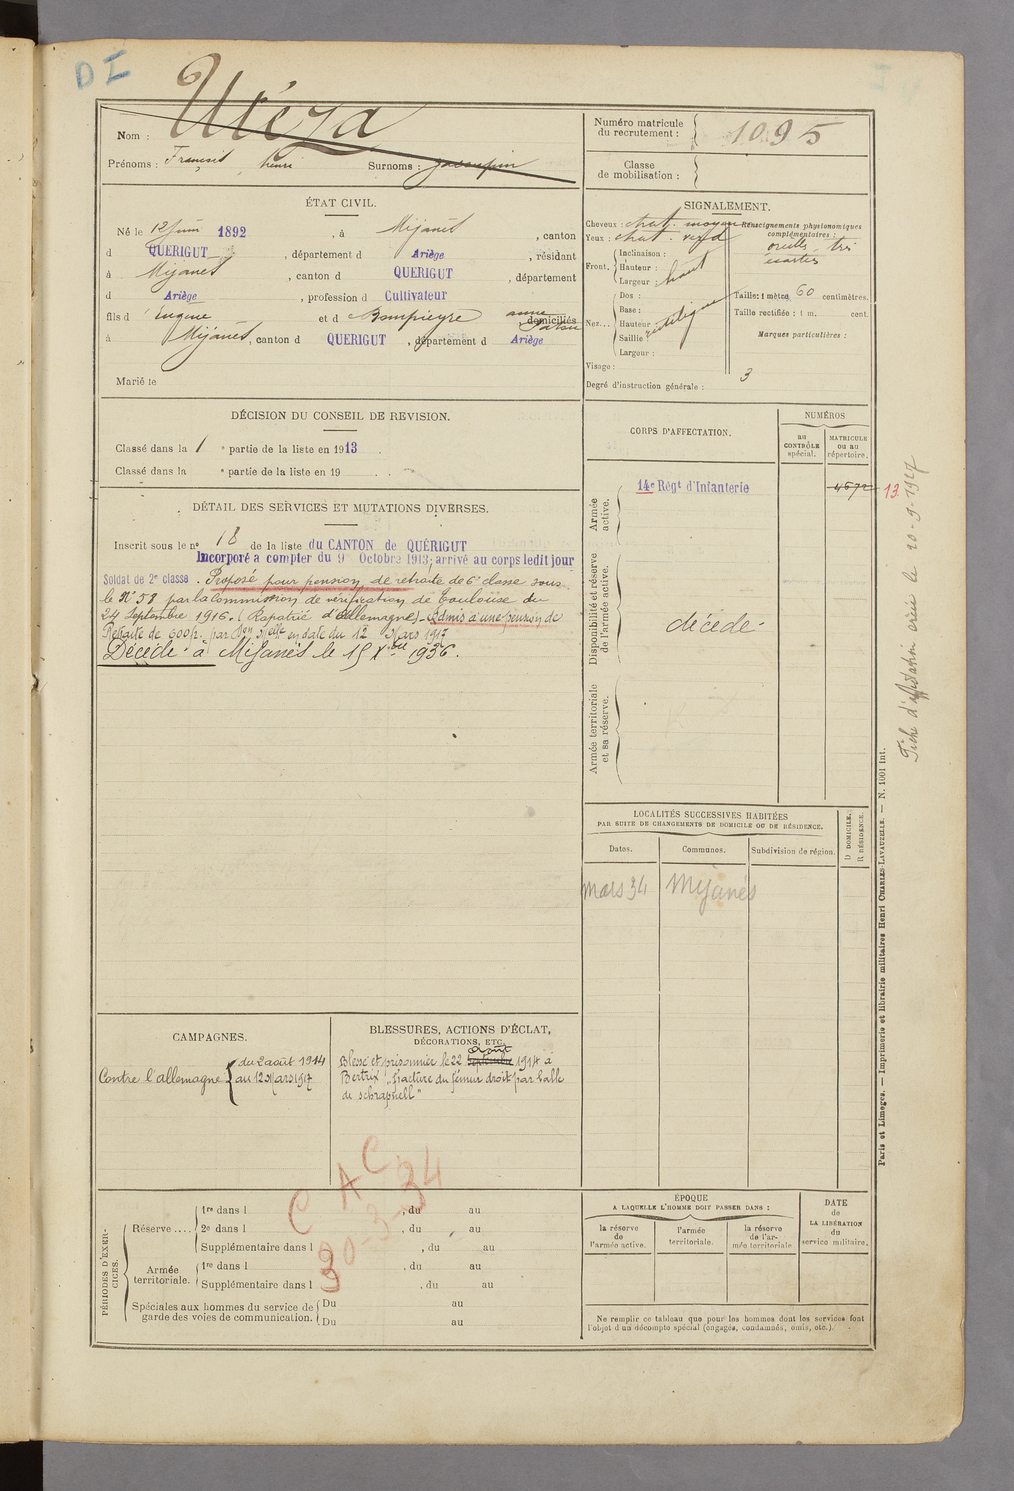 D I
Nom : Utéza
Prénoms : François, henri Surnoms :
ÉTAT CIVIL.
Né le 12 Juin 1892, à Mijanès, canton
d QUERIGUT, département d Ariège, résidant
à Mijanes, canton d QUERIGUT, département
d Ariège, profession d Cultivateur
fils d Eugène et d Bompieyre anne domiciliés
à Mijanès, canton d QUERIGUT, département d Ariège
Marié le
DÉCISION DU CONSEIL DE REVISION.
Classé dans la 1 e partie de la liste en 1913.
Classé dans la e partie de la liste en 19
DÉTAIL DES SERVICES ET MUTATIONS DIVERSES.
Inscrit sous le n° 18 de la liste du CANTON de QUÉRIGUT
Incorporé a compter du 9 Octobre 1913, arrivé au corps ledit jour
Soldat de 2e classe. Proposé pour pension de retraite de 6e classe sous
le N° 58 par la Commission de vérification de Toulouse du
24 Septembre 1916. (Rapatrié d'Allemagne) - Admis à une pension de
Retraite de 600f. par Don Melle en date du 12 Mars 1917
Décédé à Mijanès le 15 Xbre 1936.
CAMPAGNES.
Contre l'allemagne { du 2 août 1914
au 12 Mars 1917
BLESSURES, ACTIONS D'ÉCLAT,
DÉCORATIONS, ETC.
août
Blessé et prisonnier le 22 Septembre 1914 à
Bertrix "fracture du fémur droit par balle
de schrapnell"
C A C
30-3-34
3
PÉRIODES D'EXERCICES.
Réserve .... 1re dans l , du au
2e dans l , du au
Supplémentaire dans l , du au
Armée territoriale. 1re dans l , du au
Supplémentaire dans l , du au
Spéciales aux hommes du service de garde des voies de communication. Du au
Du au
Numéro matricule
du recrutement : 1095
Classe
de mobilisation :
SIGNALEMENT.
Cheveux : chat. moyen
Yeux : chat. verd
Front. Inclinaison :
Hauteur :
Largeur : haut
Nez... Dos :
Base :
Hauteur : rectiligne
Saillie :
Largeur :
Visage :
Degré d'instruction générale : 3
Renseignements physionomiques
complémentaires :
oreilles très
écartées
Taille : 1 mètre 60 centimètres.
Taille rectifiée : 1 m. cent.
Marques particulières :
CORPS D'AFFECTATION.
NUMÉROS
au
CONTRÔLE
spécial.
MATRICULE
ou au
répertoire.
Armée
active.
14e Régt d'Infanterie 4672 13
Disponibilité et réserve
de l'armée active.
décédé
Armée territoriale
et sa réserve.
LOCALITÉS SUCCESSIVES HABITÉES
PAR SUITE DE CHANGEMENTS DE DOMICILE OU DE RÉSIDENCE.
Dates. Communes. Subdivision de région. D DOMICILE. R RÉSIDENCE.
mars 34 Mijanès
ÉPOQUE
A LAQUELLE L'HOMME DOIT PASSER DANS :
la réserve
de
l'armée active.
l'armée
territoriale.
la réserve
de l'ar-
mée territoriale
DATE
de
LA LIBÉRATION
du
service militaire.
Ne remplir ce tableau que pour les hommes dont les services font
l'objet d'un décompte spécial (engagés, condamnés, omis, etc.).
Fiche d'affectation créée le 20-9-1927
Paris et Limoges. — Imprimerie et librairie militaires Henri CHARLES-LAVAUZELLE. — N. 1001 Int.